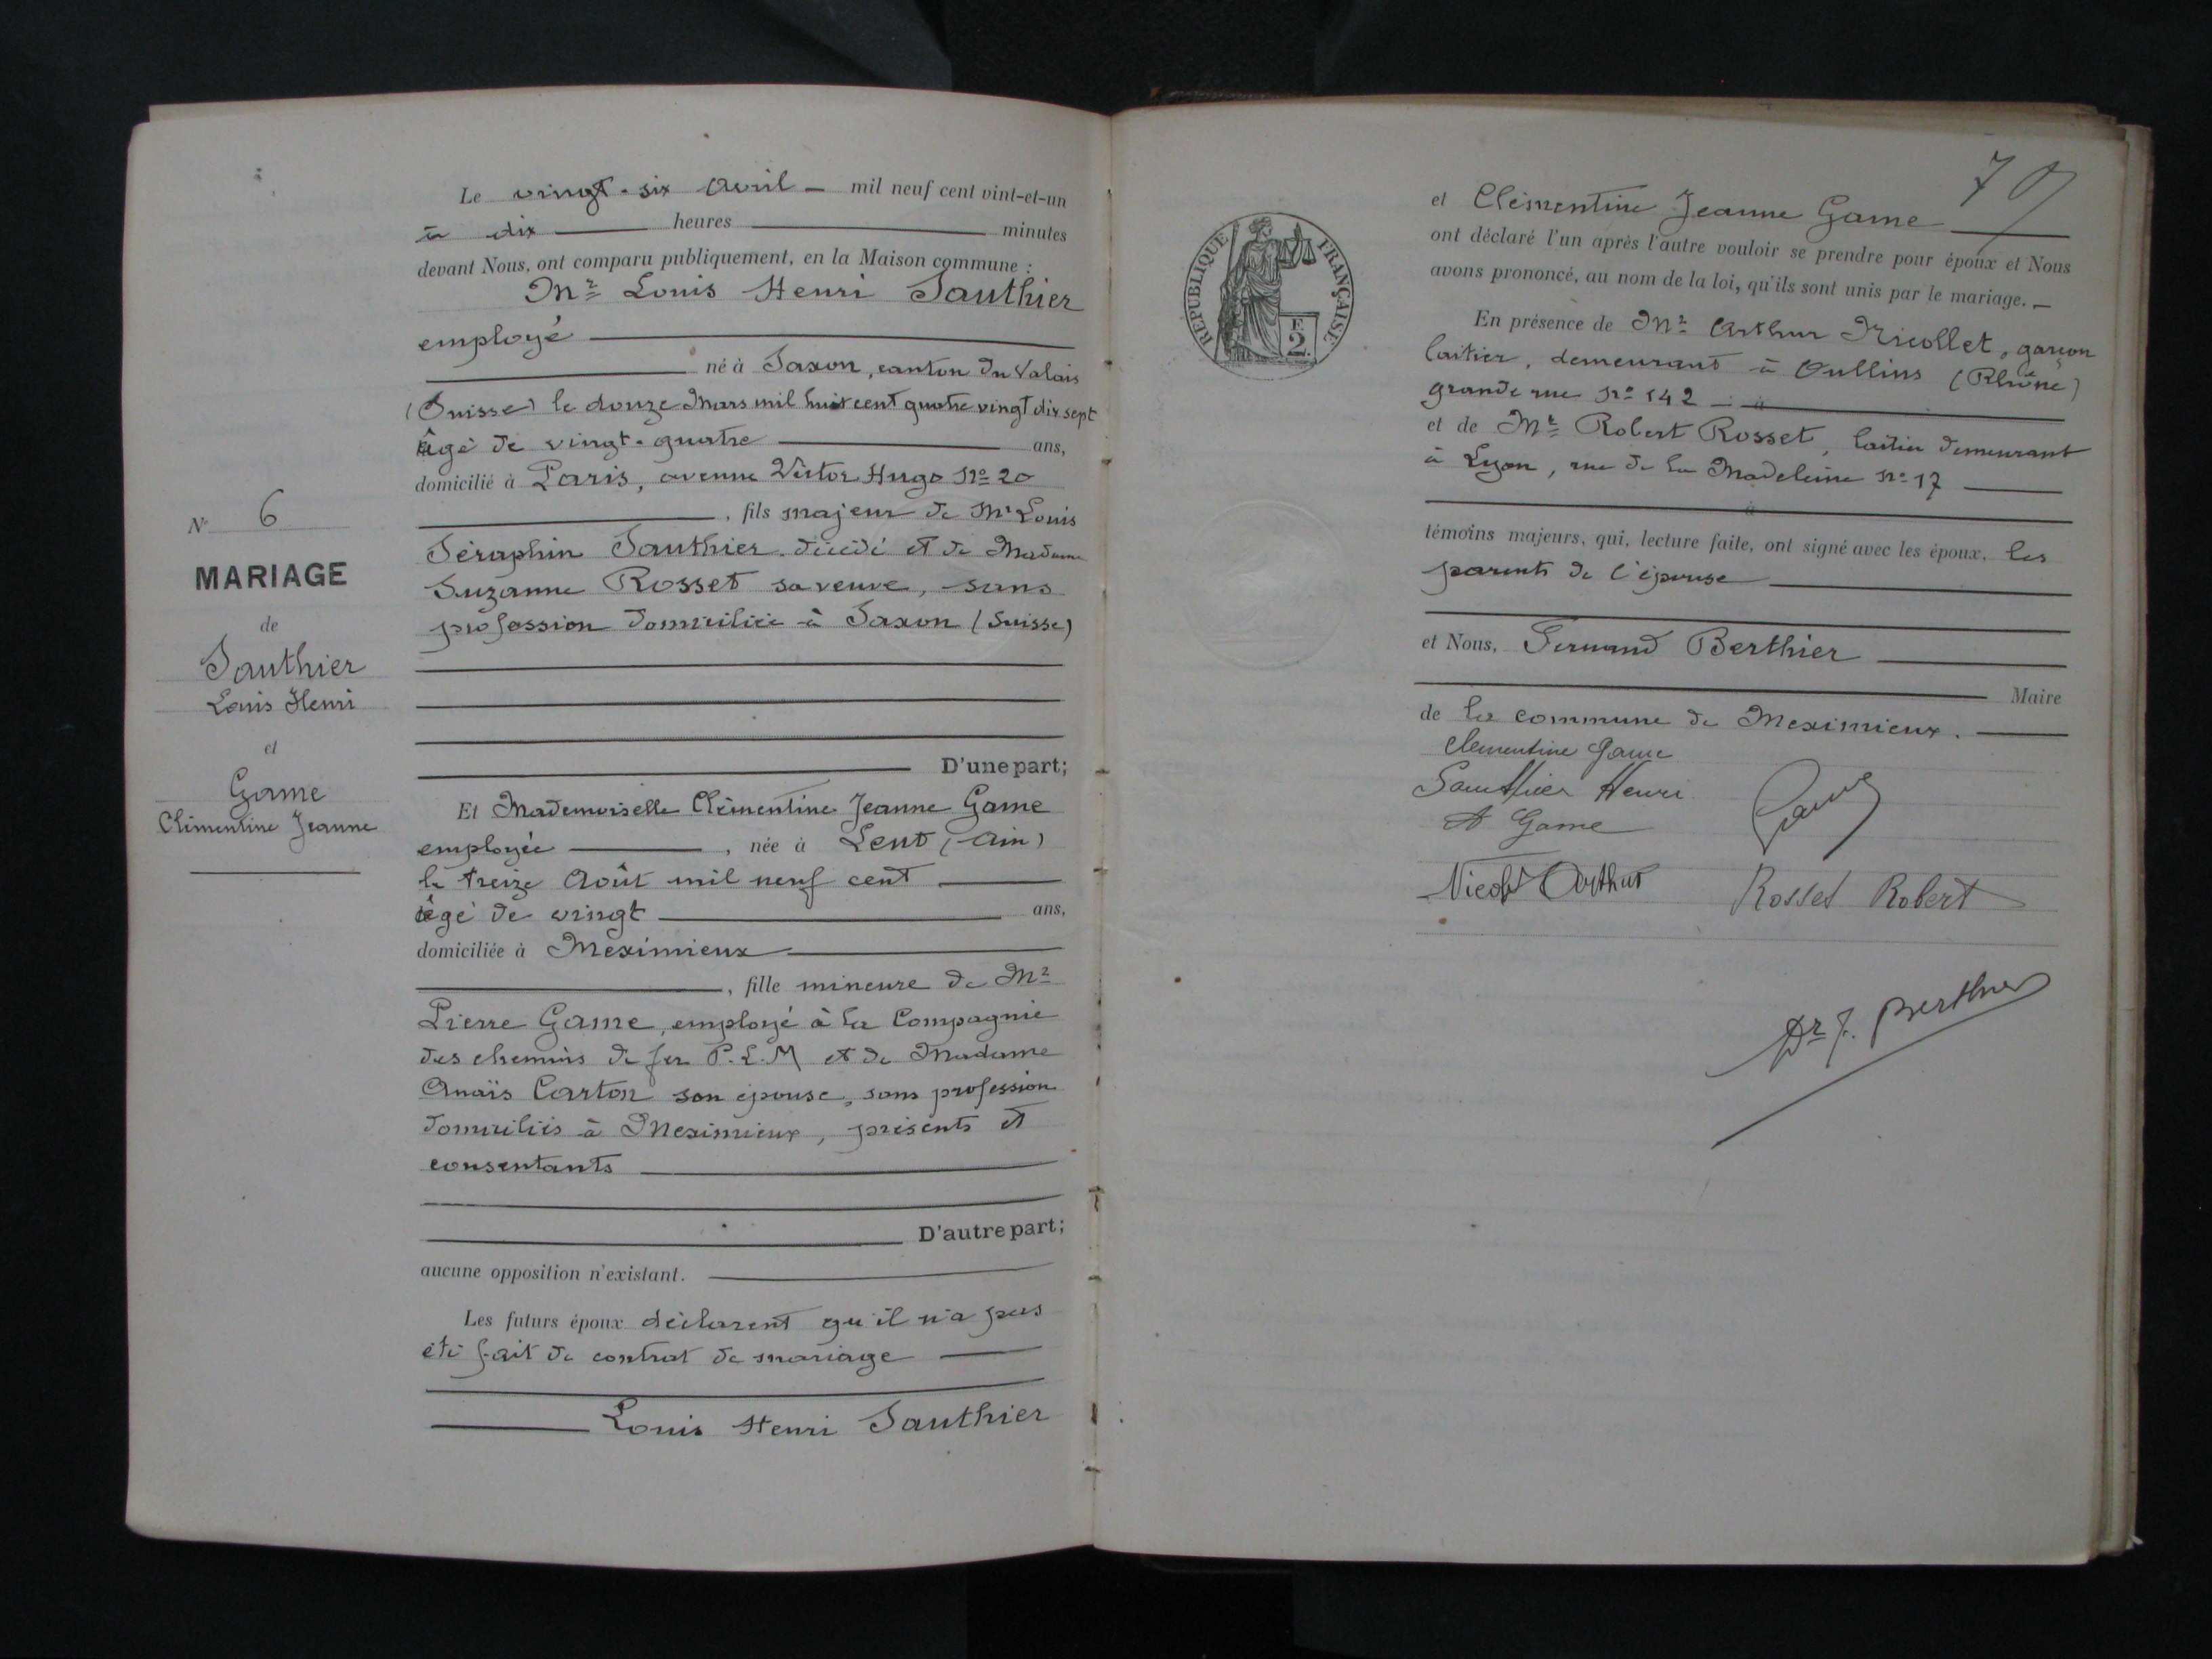 N° 6
MARIAGE
de
Sauthier
Louis Henri
et
Game
Clémentine Jeanne
Le vingt-six Avril - mil neuf cent vint-et-un
à dix heures minutes
devant Nous, ont comparu publiquement, en la Maison commune :
Mr Louis Henri Sauthier
employé
né à Saxon, canton du Valais
(Suisse) le douze Mars mil huit cent quatre vingt dix sept
âgé de vingt-quatre ans,
domicilié à Paris, avenue Victor Hugo No 20
, fils majeur de Mr Louis
Séraphin Sauthier décédé et de Madame
Suzanne Rosset sa veuve, sans
profession domiciliée à Saxon (Suisse)
D'une part;
Et Mademoiselle Clémentine Jeanne Game
employée , née à Lent (Ain)
le treize Août mil neuf cent
âgé de vingt ans,
domiciliée à Meximieux
, fille mineure de Mr
Pierre Game, employé à la Compagnie
des chemins de fer P.L.M et de Madame
Anaïs Carton son épouse, sans profession
domiciliés à Meximieux, présents et
consentants
D'autre part;
aucune opposition n'existant.
Les futurs époux déclarent qu'il n'a pas
été fait de contrat de mariage
Louis Henri Sauthier
RÉPUBLIQUE FRANÇAISE
E
2
70
et Clémentine Jeanne Game
ont déclaré l'un après l'autre vouloir se prendre pour époux et Nous
avons prononcé, au nom de la loi, qu'ils sont unis par le mariage.
En présence de Mr Arthur Nicollet, garçon
laitier, demeurant à Oullins (Rhône)
grande rue no 142 à
et de Mr Robert Rosset, laitier demeurant
à Lyon, rue de la Madeleine no 17
à
témoins majeurs, qui, lecture faite, ont signé avec les époux, les
parents de l'épouse
et Nous, Fernand Berthier
Maire
de la commune de Meximieux.
Clementine Game
Sauthier Henri
A Game
Game
Nicollet Arthur
Rosset Robert
Dr F. Berthier